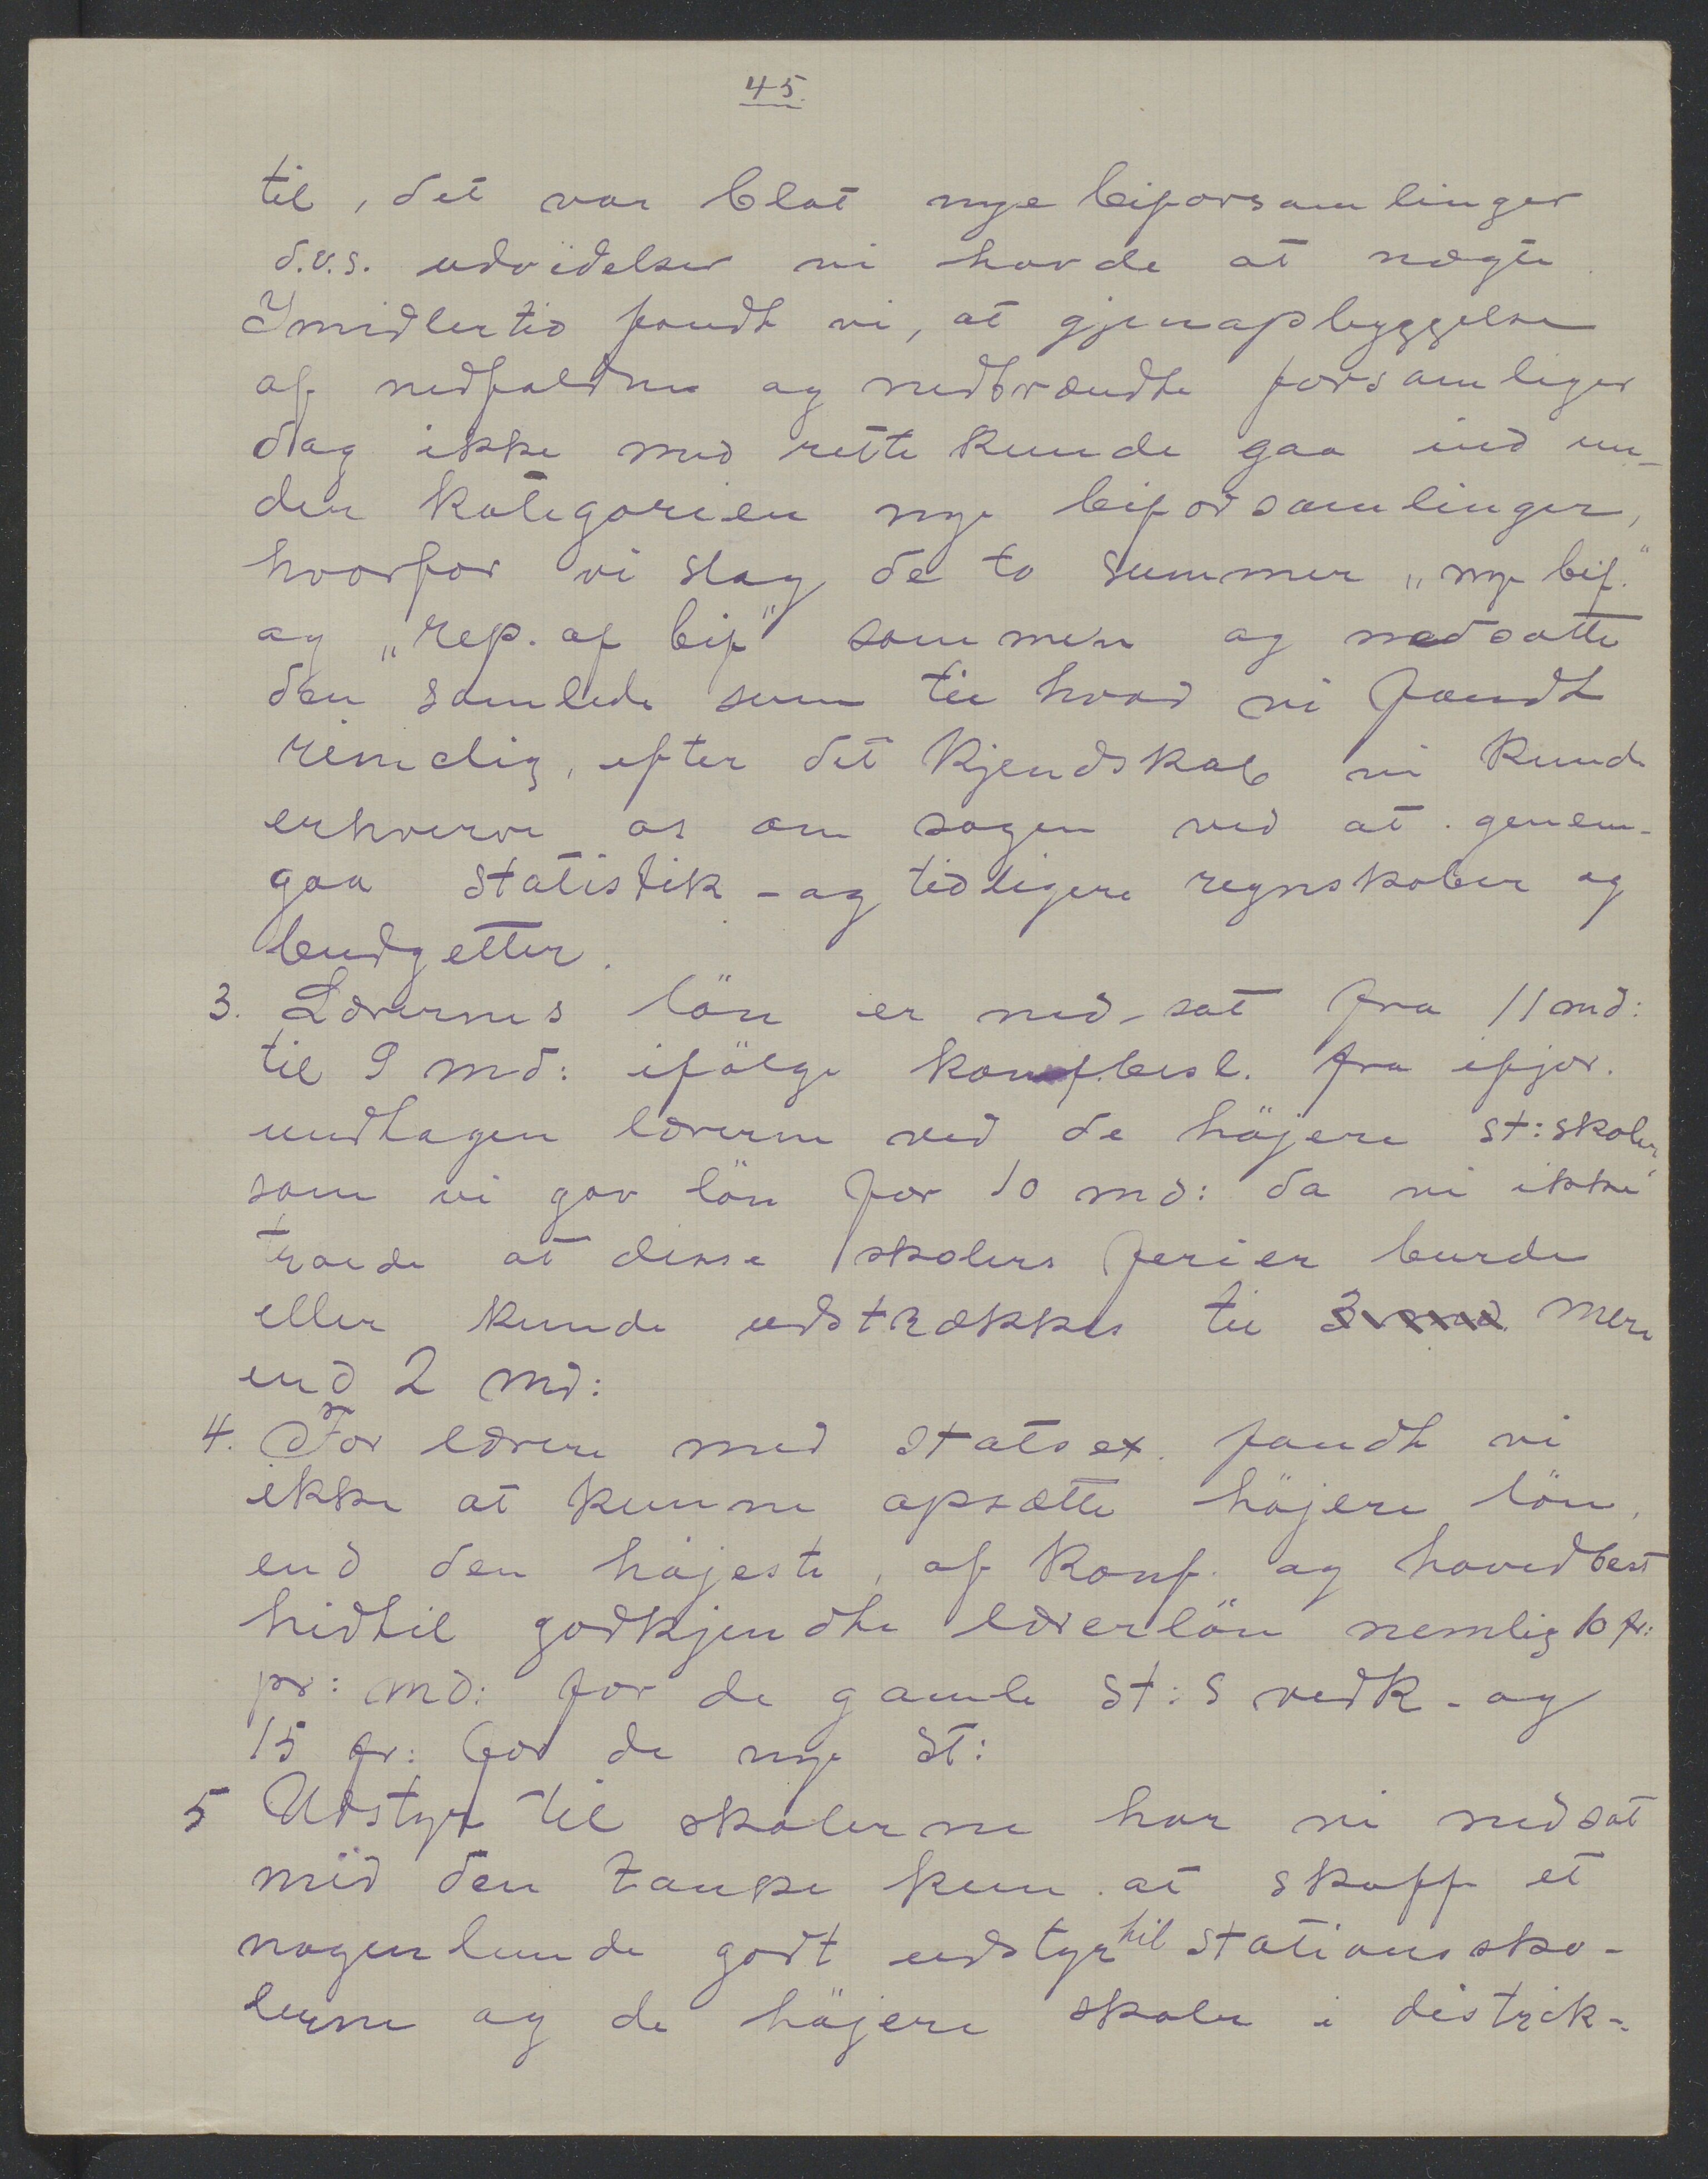 45.
til, det var blot nye biforsamlinger
d.v.s. udvidelser vi havde at nægte.
Imidlertid fandt vi, at gjenopbyggelse
af nedfaldne og nedbrændte forsamliger
dog ikke med rette kunde gaa ind un-
der kategorien nye biforsamlinger,
hvorfor vi slog de to summer "nye bif."
og "rep. af bif" sammen og nedsatte
den samlede sum til hvad vi fandt
rimelig, efter det kjendskab vi kunde
erhverve os om sagen ved at genem-
gaa statistik - og tidligere regnskaber og
budgetter.
3. Lærernes lön er ned-sat fra 11 md:
til 9 md: ifölge konf.besl. fra ifjor.
undtagen lærerne ved de höjere st:skoler,
som vi gav lön for 10 md: da vi ikke
troede at disse skolers ferier burde
eller kunde udstrækkes til 3 md. mere
end 2 md:
4. For lærere med statsex. fandt vi
ikke at kunne opsætte höjere lön,
end den höjeste, af konf. og hovedbest
hidtil godkjendte lærerlön nemlig 10 fr:
pr: md: for de gamle st:s vedk - og
15 fr: for de nye St:
5 Udstyr til skolerne har vi nedsat
med den tanke kun at skaffe et
nogenlunde godt udstyr til stationssko-
lerne og de höjere skoler i distrik-